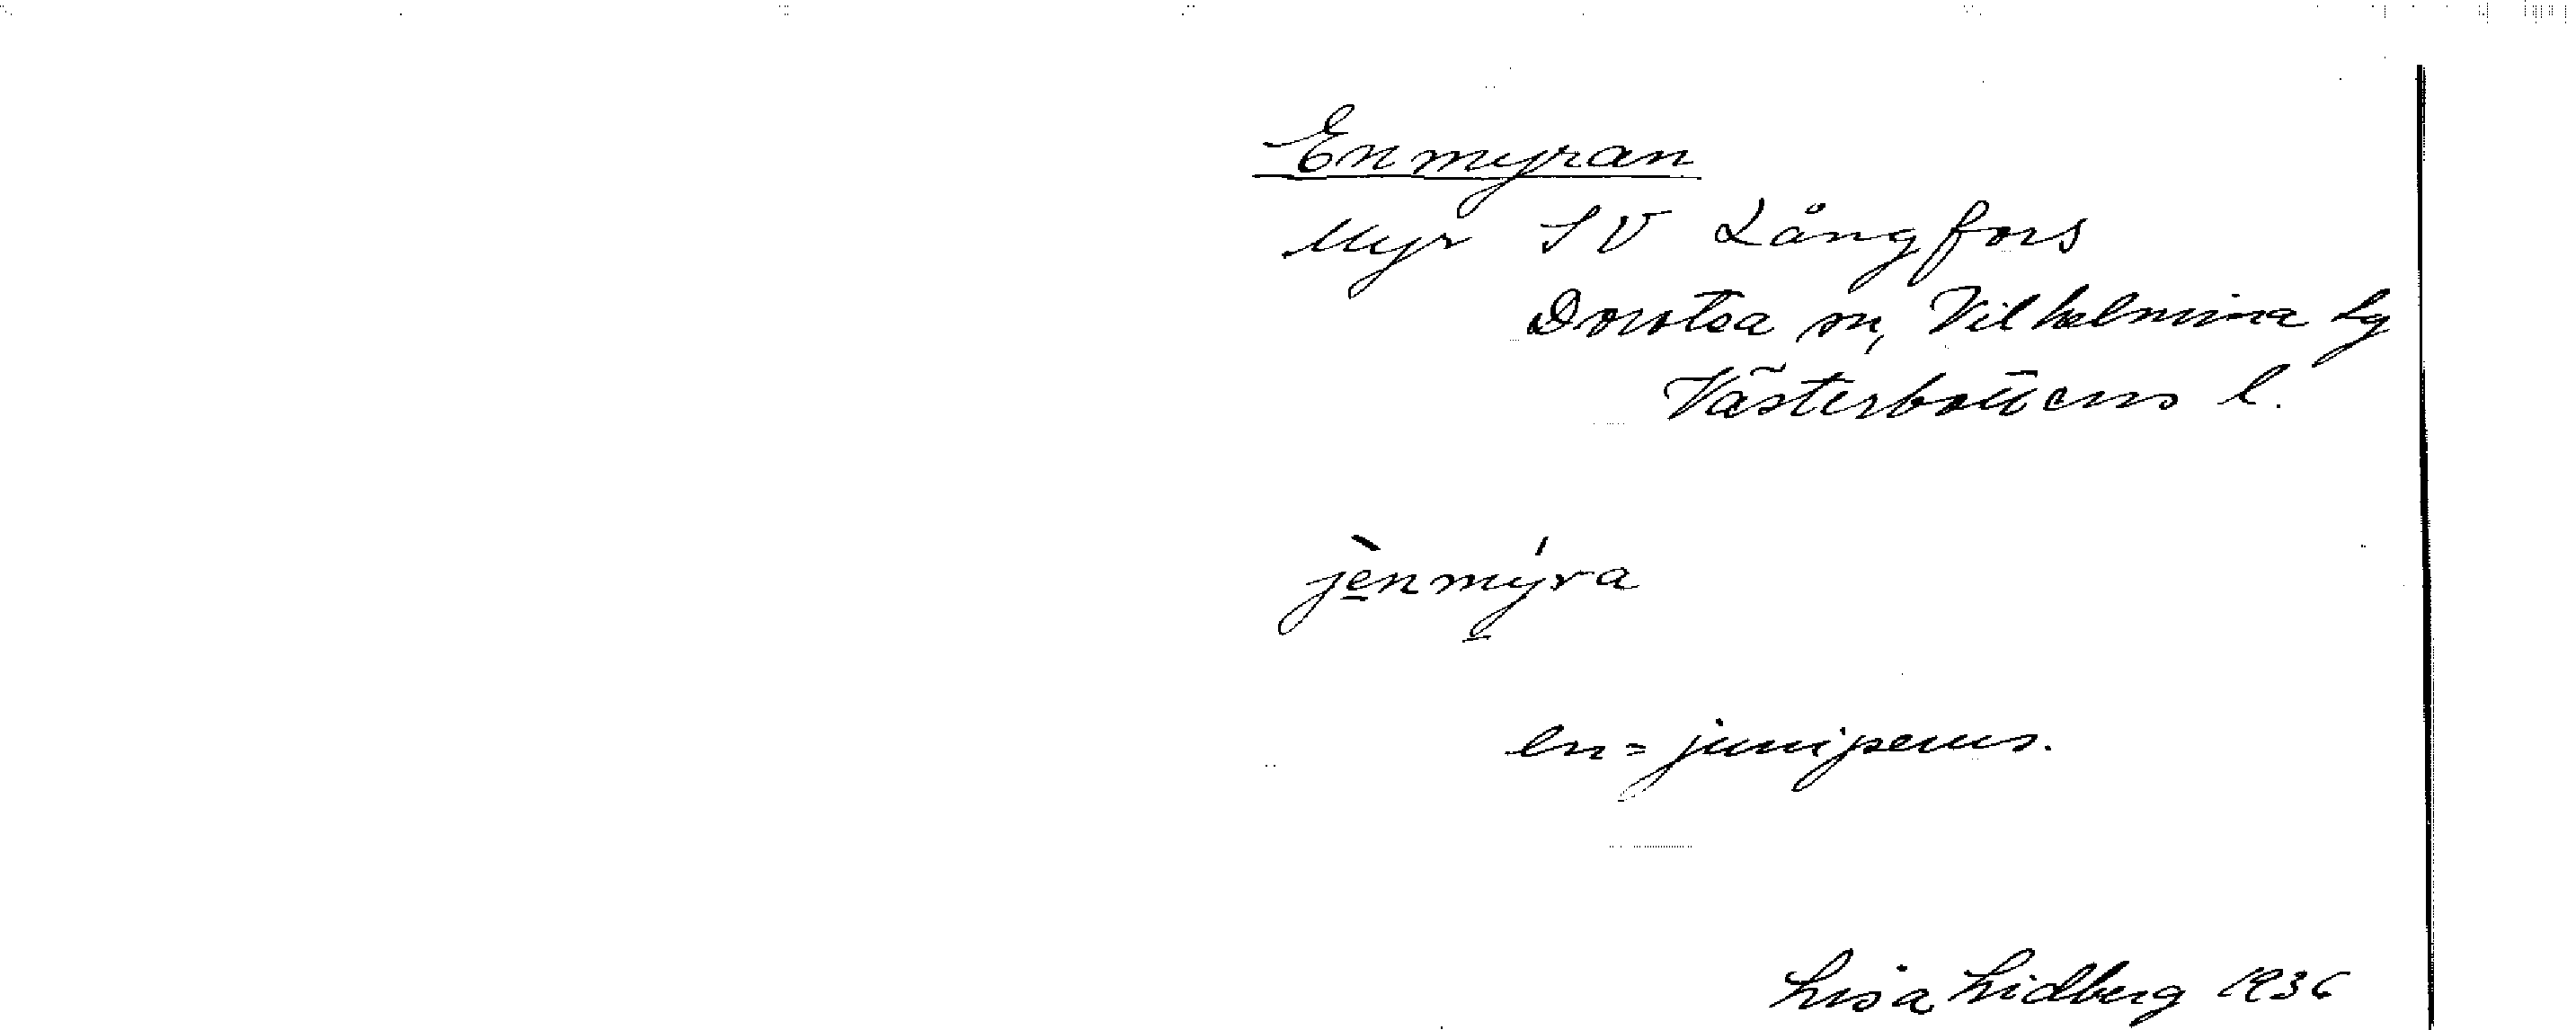 Enmyran
Myr SV Långfors
Dorotea sn, Vilhelmina lg
Västerbottens l.
jènmýra
en = juniperus.
Lisa Lidberg 1936